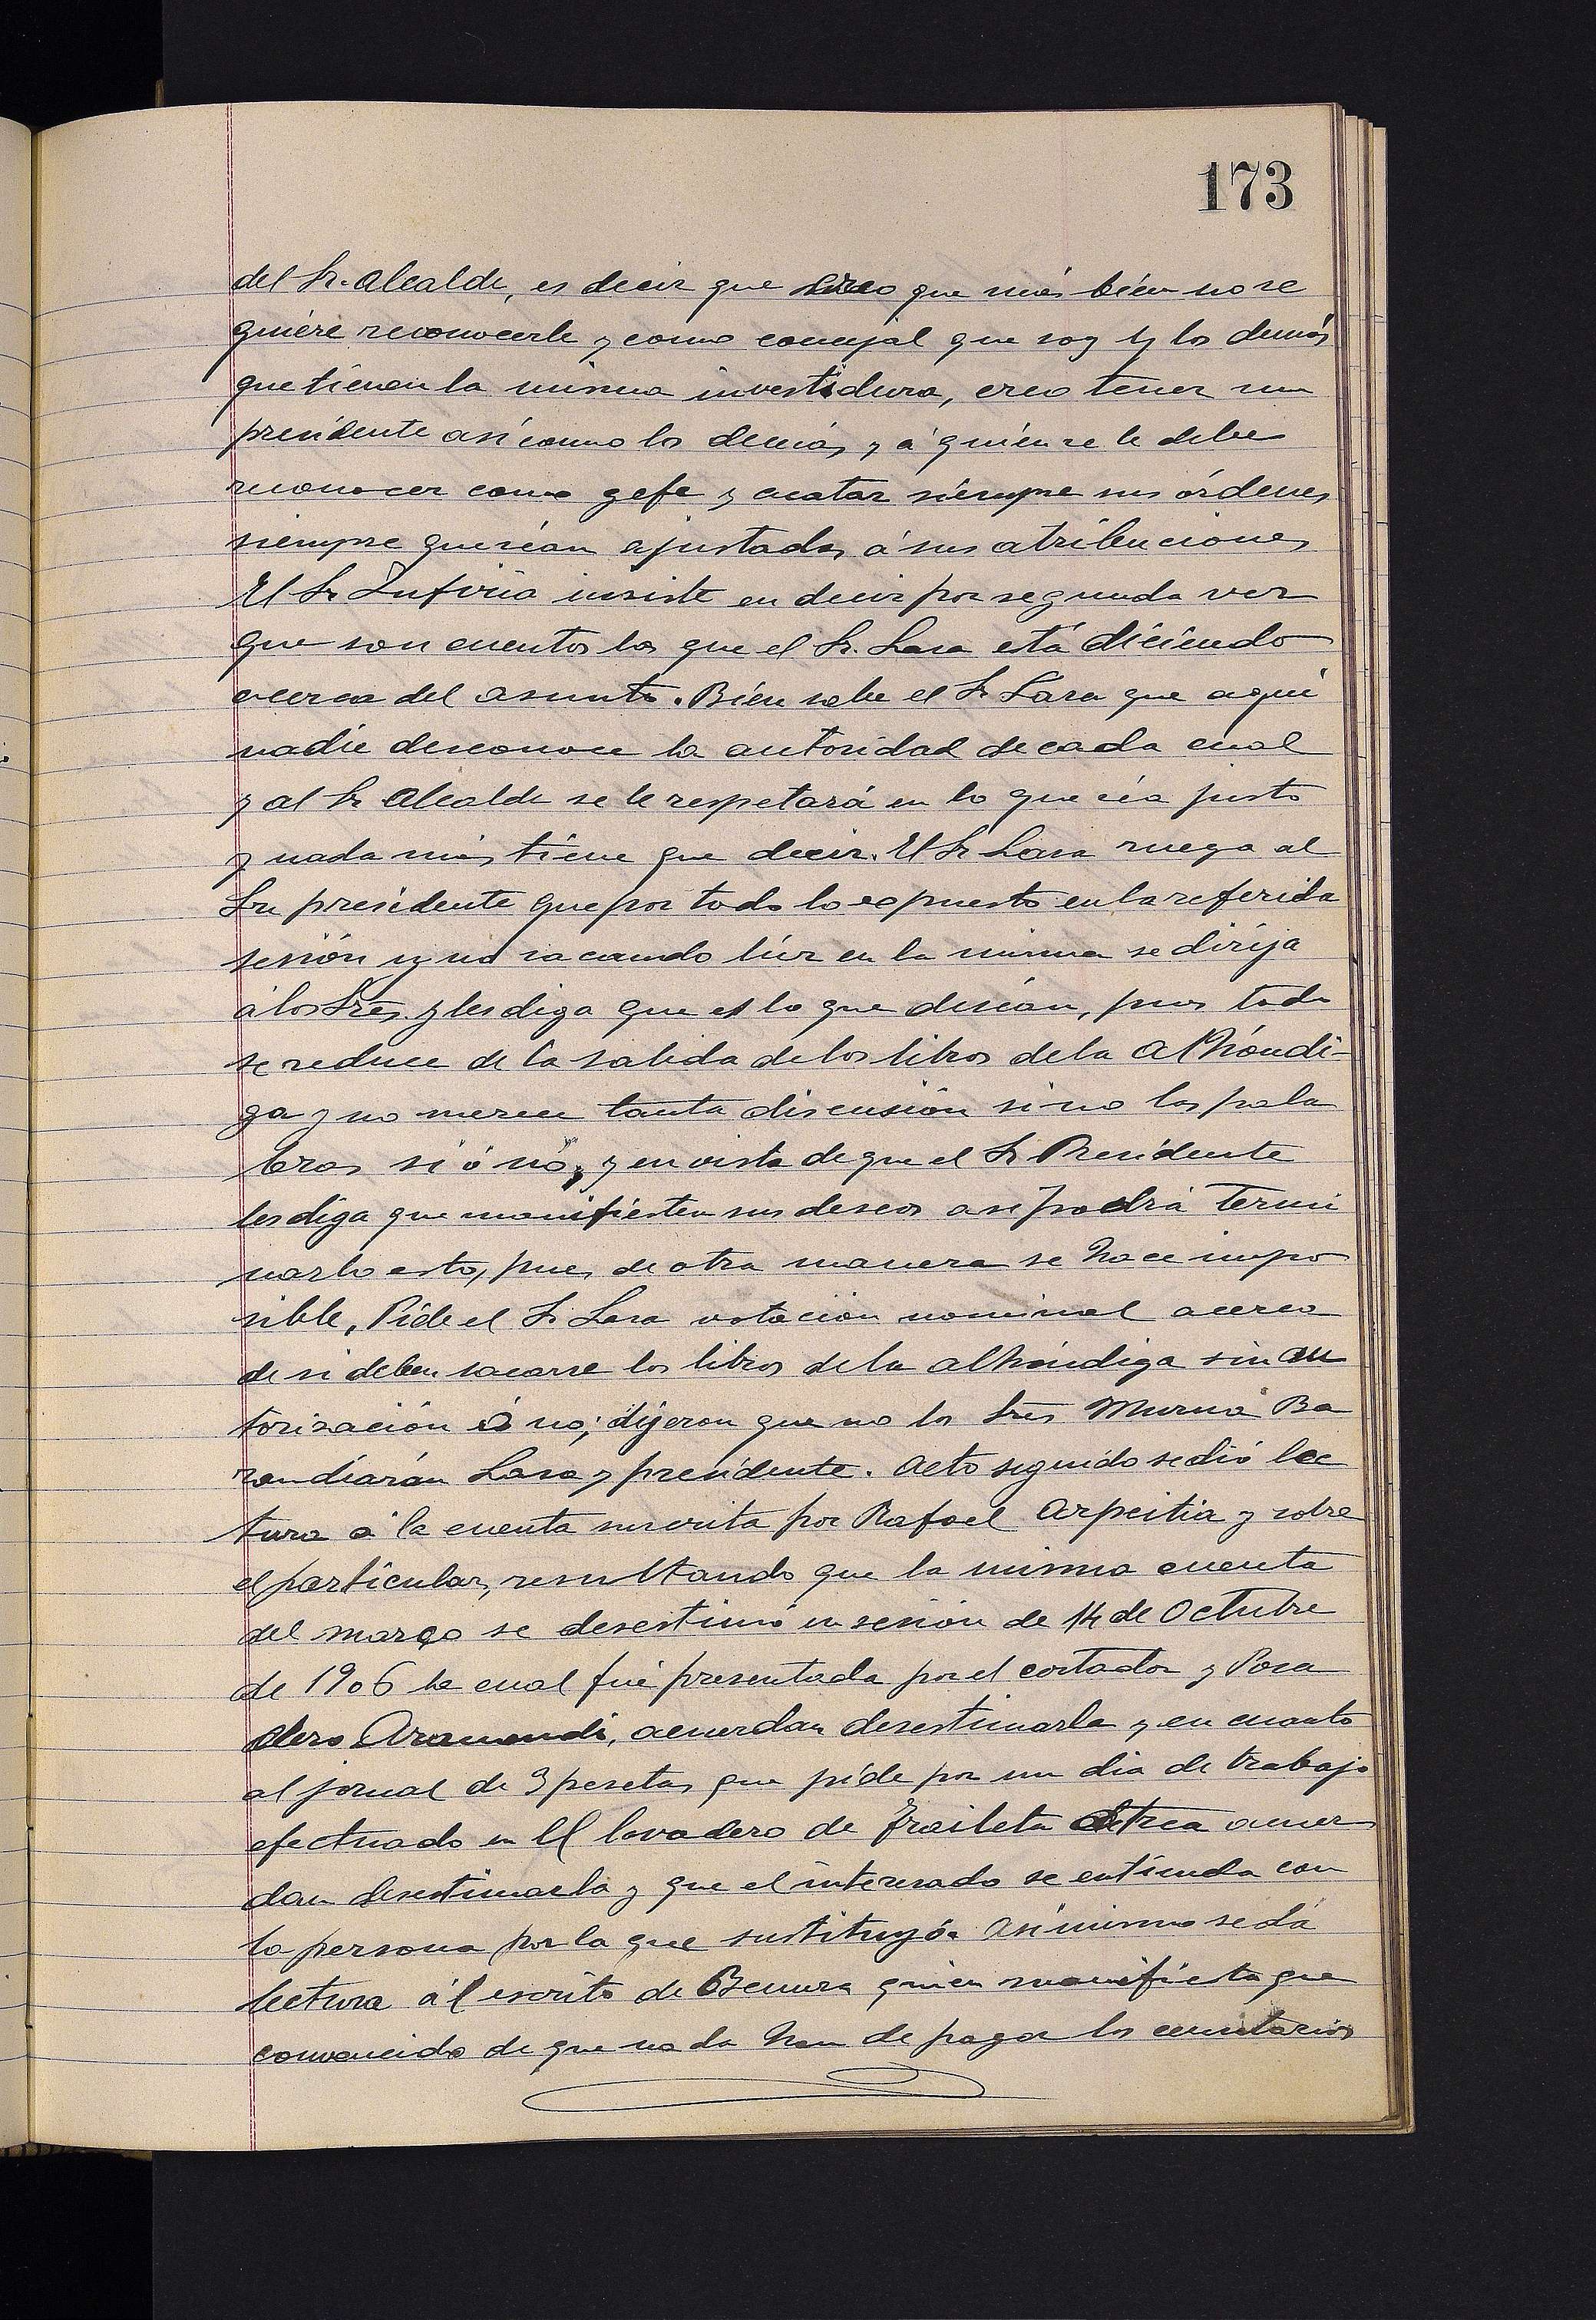 173
del Sr. Alcalde, es decir que creo que más bién no se
quiere reconocerle y como concejal que soy y los demás
que tienen la misma investidura, creo tener un
presidente así como los demás, y á quién se le debe
reconocer como gefe y acatar siempre sus órdenes,
siempre que séan ajustadas á sus atribuciones,
El Sr Zufiria insiste en decir por segunda vez
que son cuentos los que el Sr. Lasa está diciendo
acerca del asunto. Bién sabe el Sr Lasa que aqui
nadie desconoce la autoridad de cada cual
y al Sr Alcalde se le respetará en lo que séa justo
y nada más tiene que decir. El Sr Lasa ruega al
Sr presidente que por todo lo expuesto en la referida
sesión y no sacando lúz en la misma se dirija
á los Sres. y les diga que es lo que deséan, pues todo
se reduce de la salida de los libros de la Alhóndi-
ga y no merece tanta discusión si no las pala
bras si ó nó, y en vista de que el Sr Presidente
les diga que manifiesten sus deseos asi podrá termi
narlo esto, pues de otra manera se hace impo
sible, Pide el Sr Lasa votacion nominal acerca
de si deben sacarse los libros de la alhóndiga sin au
torización ó no; dijeron que no los Sres Murua Ba
randiarán Lasa y presidente. Acto seguido se dió lec
tura á la cuenta suscrita por Rafael Azpeitia y sobre
el particular, resultando que la misma cuenta
del março se desestimó en sesión de 14 de Octubre
de 1906 la cual fué presentada por el cortador y Posa
dero Aramendi, acuerdan desestimarla y en cuanto
al jornal de 3 pesetas que pide por un dia de trabajo
efectuado en El lavadero de Fraileta acuer
dan desestimarla y que el interesado se entienda con
la persona por la que sustituyó. Asi mismo se dá
lectura ál escrito de Bemura quien manifiesta que
convencido de que nada han de pagar los